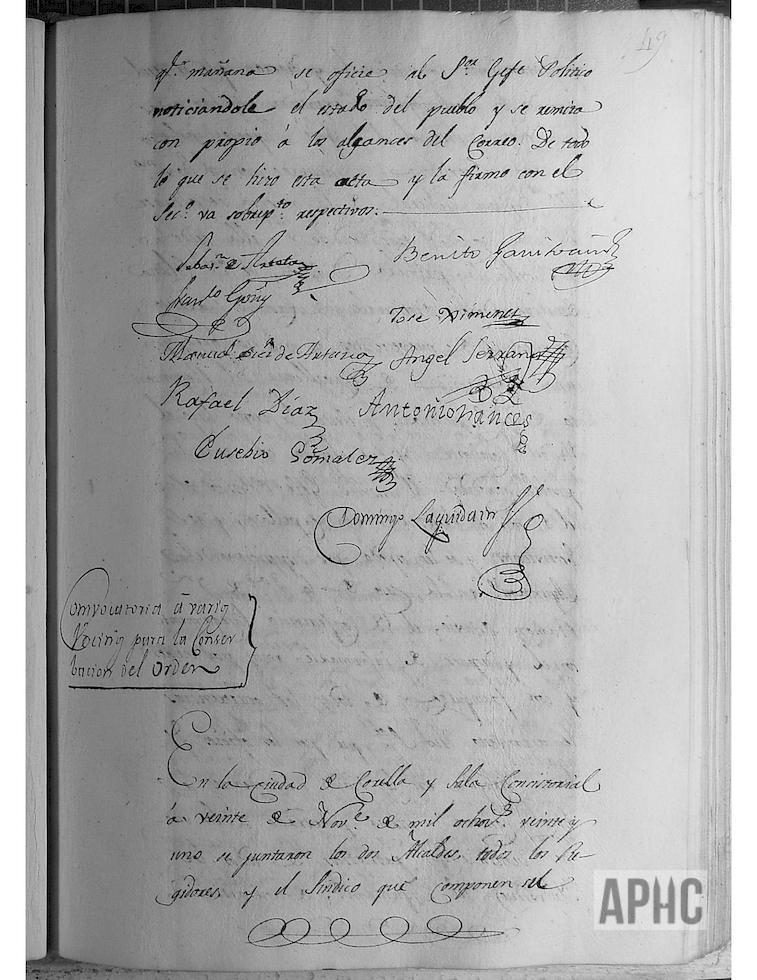 49
qͤ. mañana se oficie al Sʳ. Gefe Politico
noticiandole el estado del pueblo y se remita
con propio á los alcances del Correo. De todo
lo que se hizo esta acta y la firmo con el
Secº. va sobrepᵗᵒ. respectivos.
Benito
Josè Ximenez
Manuel de Angel Serrano
Rafael Díaz Antonio Nançes
Eusebio Gonzalez
Domingo Laquidain
Comvocatoria á varios
Vecinos para la Conser
bacion del Orden
En la ciudad de Corella y Sala Consistorial
á veinte de Novᵉ. de mil ochoᵗˢ. veinte y
uno se juntaron los dos Alcaldes, todos los Re
gidores, y el Sindico que componen sel
APHC